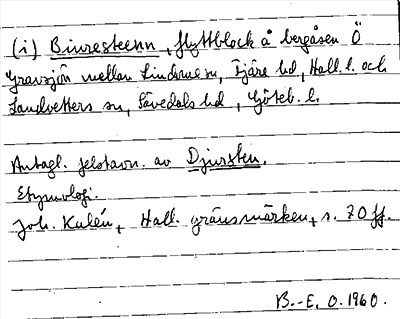 (i) Biuresteenn, flyttblock å bergåsen Ö
Gravsjön mellan Lindome sn, Fjäre hd, Hall. l. och
Landvetters sn, Sävedals hd, Göteb. l.
Antagl. felstavn. av Djursten.
Etymologi.
Joh. Kalén, Hall. gränsmärken, s. 70 ff.
B.-E. O. 1960.